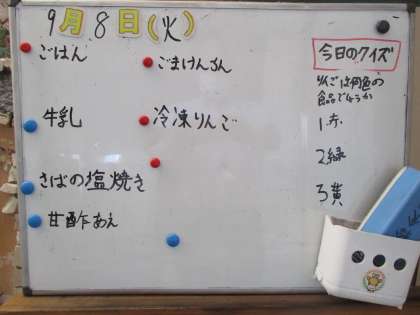 9月8日(火)
ごはん
ごまけんちん
牛乳
冷凍りんご
さばの塩焼き
甘酢あえ
今日のクイズ
りんごは何色の
食品でしょうか
1赤
2緑
3黄